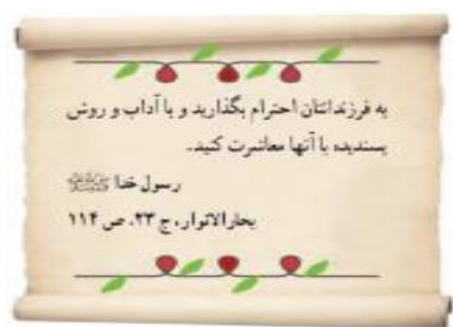 به فرزندانتان احترام بگذارید و با آداب و روش
پسندیده با آنها معاشرت کنید.
رسول خدا ﷺ
بحارالانوار، ج ۲۳، ص ۱۱۴